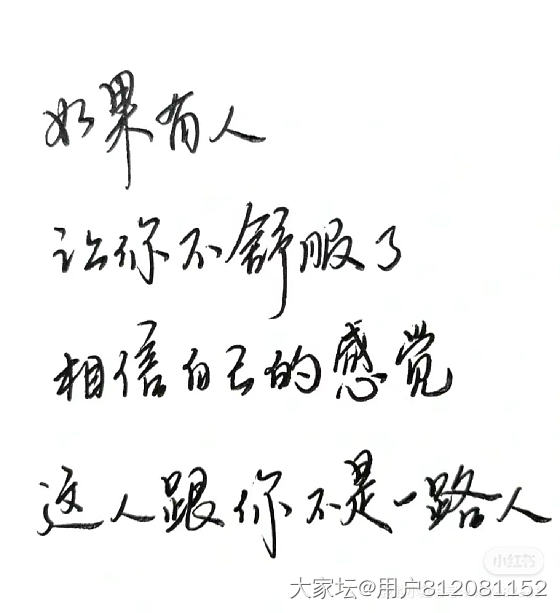 如果有人
让你不舒服了
相信自己的感觉
这人跟你不是一路人
小红书
大家坛@用户812081152